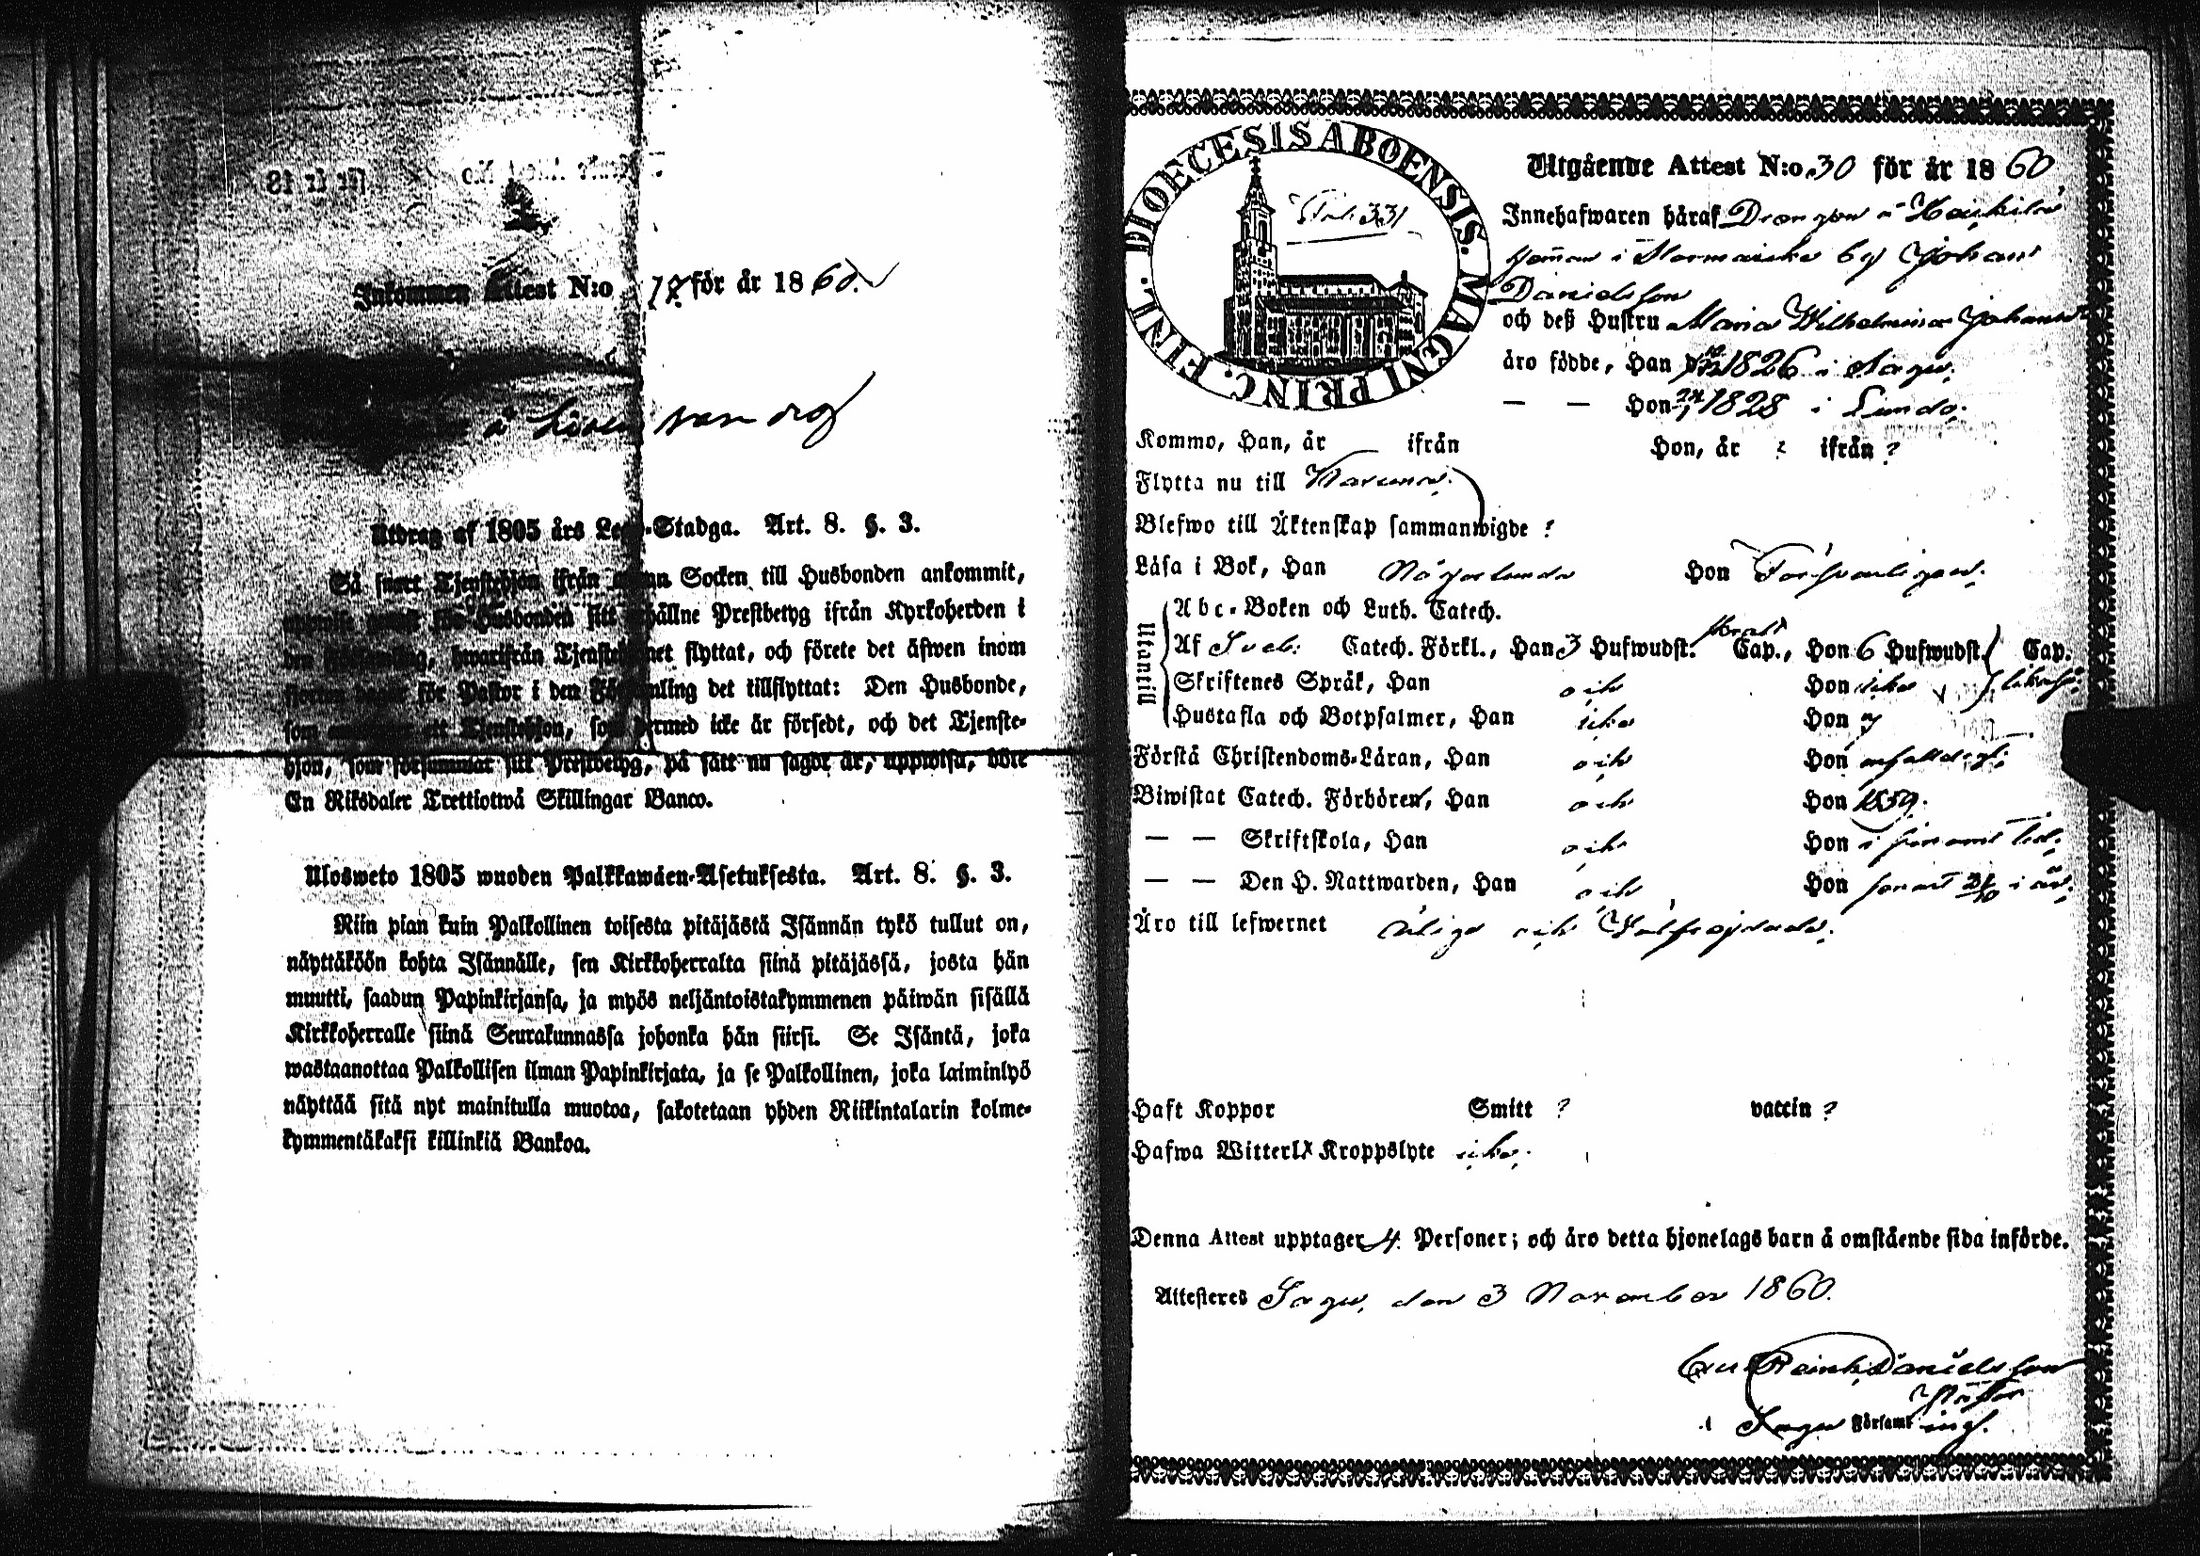 Inkommen Attest N:o 18 för år 1860.
å
Utdrag af 1805 års Lego-Stadga. Art. 8. §. 3.
Så snart Tjenstehjon ifrån annan Socken till Husbonden ankommit,
Husbonden sitt erhållne Prestbetyg ifrån Kyrkoherden i
den Församling, hwarifrån Tjenstehjonet flyttat, och förete det äfwen inom
fjorton dagar för Pastor i den Församling det tillflyttat: Den Husbonde,
som Tjenstehjon, som dermed icke är försedt, och det Tjenste-
hjon, som försummat sitt Prestbetyg, på sätt nu sagdt är, uppwisa, böte
En Riksdaler Trettiotwå Skillingar Banco.
Ulosweto 1805 wuoden Palkkawäen-Asetuksesta. Art. 8. §. 3.
Niin pian kuin Palkollinen toisesta pitäjästä Isännän tykö tullut on,
näyttäköön kohta Isännälle, sen Kirkkoherralta siinä pitäjässä, josta hän
muutti, saadun Papinkirjansa, ja myös neljäntoistakymmenen päiwän sisällä
Kirkkoherralle siinä Seurakunnassa johonka hän siirsi. Se Isäntä, joka
wastaanottaa Palkollisen ilman Papinkirjata, ja se Palkollinen, joka laiminlyö
näyttää sitä nyt mainitulla muotoa, sakotetaan yhden Riikintalarin kolme-
kymmentäkaksi killinkiä Bankoa.
DIOECESIS ABOENSIS. MAGNI PRINC. FINL.
Fol. 331
Utgående Attest N:o 30 för år 1860
Innehafwaren häraf Drengen å
i by Johan
Danielsson
och deß Hustru Maria Wilhelmina Johansd
äro födde, Han 1826 i Sagu.
— — Hon 1828 i Lundo.
Kommo, Han, år ifrån Hon, år ? ifrån ?
Flytta nu till Karuna.
Blefwo till Äktenskap sammanwigde ?
Läsa i Bok, Han Någorlunda Hon Försvarligen.
Utantill
Abc-Boken och Luth. Catech.
Af Sveb. Catech. Förkl., Han 3 Hufwudst. Cap., Hon 6 Hufwudst. Cap.
Skriftenes Språk, Han och Hon icke
Hustafla och Botpsalmer, Han icke Hon
Första Christendoms-Läran, Han och Hon enfaldigt.
Biwistat Catech. Förhören, Han och Hon 1859.
— — Skriftskola, Han och Hon i
— — Den H. Nattwarden, Han och Hon senast i år.
Äro till lefwernet ärliga och Välfrejdade.
Haft Koppor Smitt ? vaccin ?
Hafwa Witterl. Kroppslyte icke.
Denna Attest upptager 4 Personer; och äro detta hjonelags barn å omstående sida införde.
Attesteras Sagu, den 3 November 1860.
Reinh. Danielsson
i Sagu Församling.